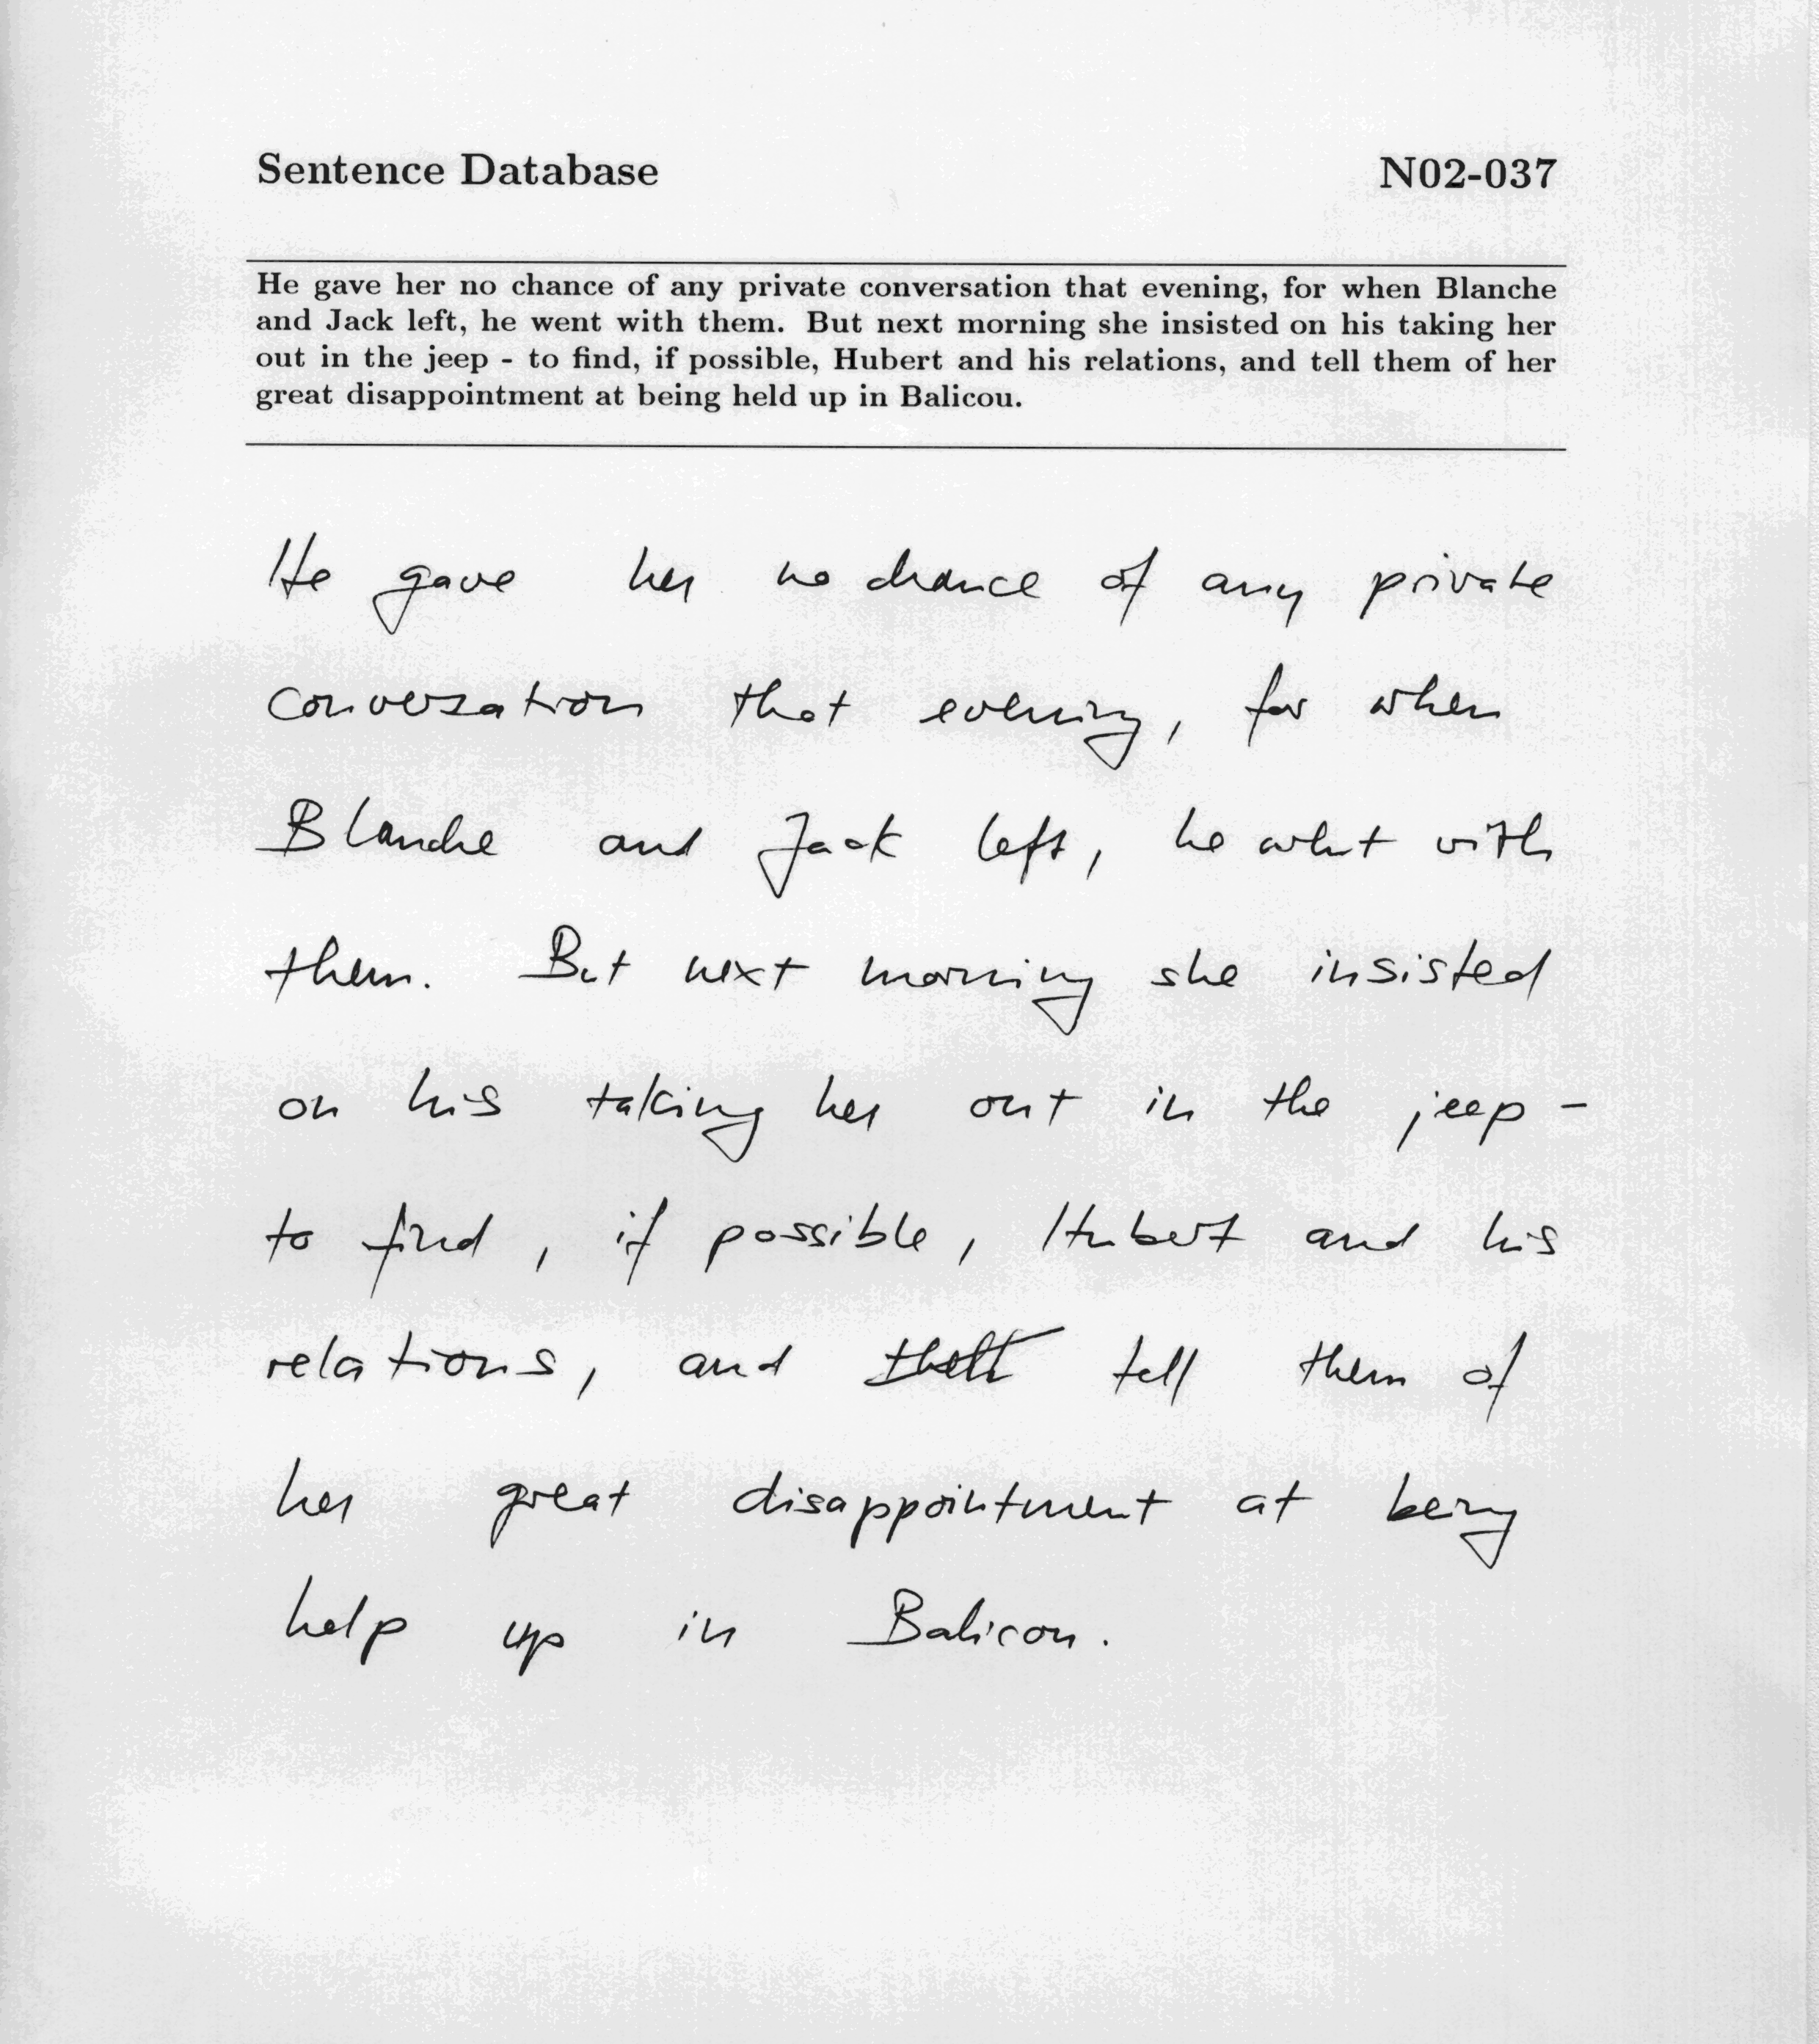 Sentence Database N02-037
He gave her no chance of any private conversation that evening, for when Blanche
and Jack left, he went with them. But next morning she insisted on his taking her
out in the jeep - to find, if possible, Hubert and his relations, and tell them of her
great disappointment at being held up in Balicou.
He gave her no chance of any private
conversation that evening, for when
Blanche and Jack left, he whent with
them. But next morning she insisted
on his taking her out in the jeep -
to find, if possible, Hubert and his
relations, and tell them of
her great disappointment at being
help up in Balicou.